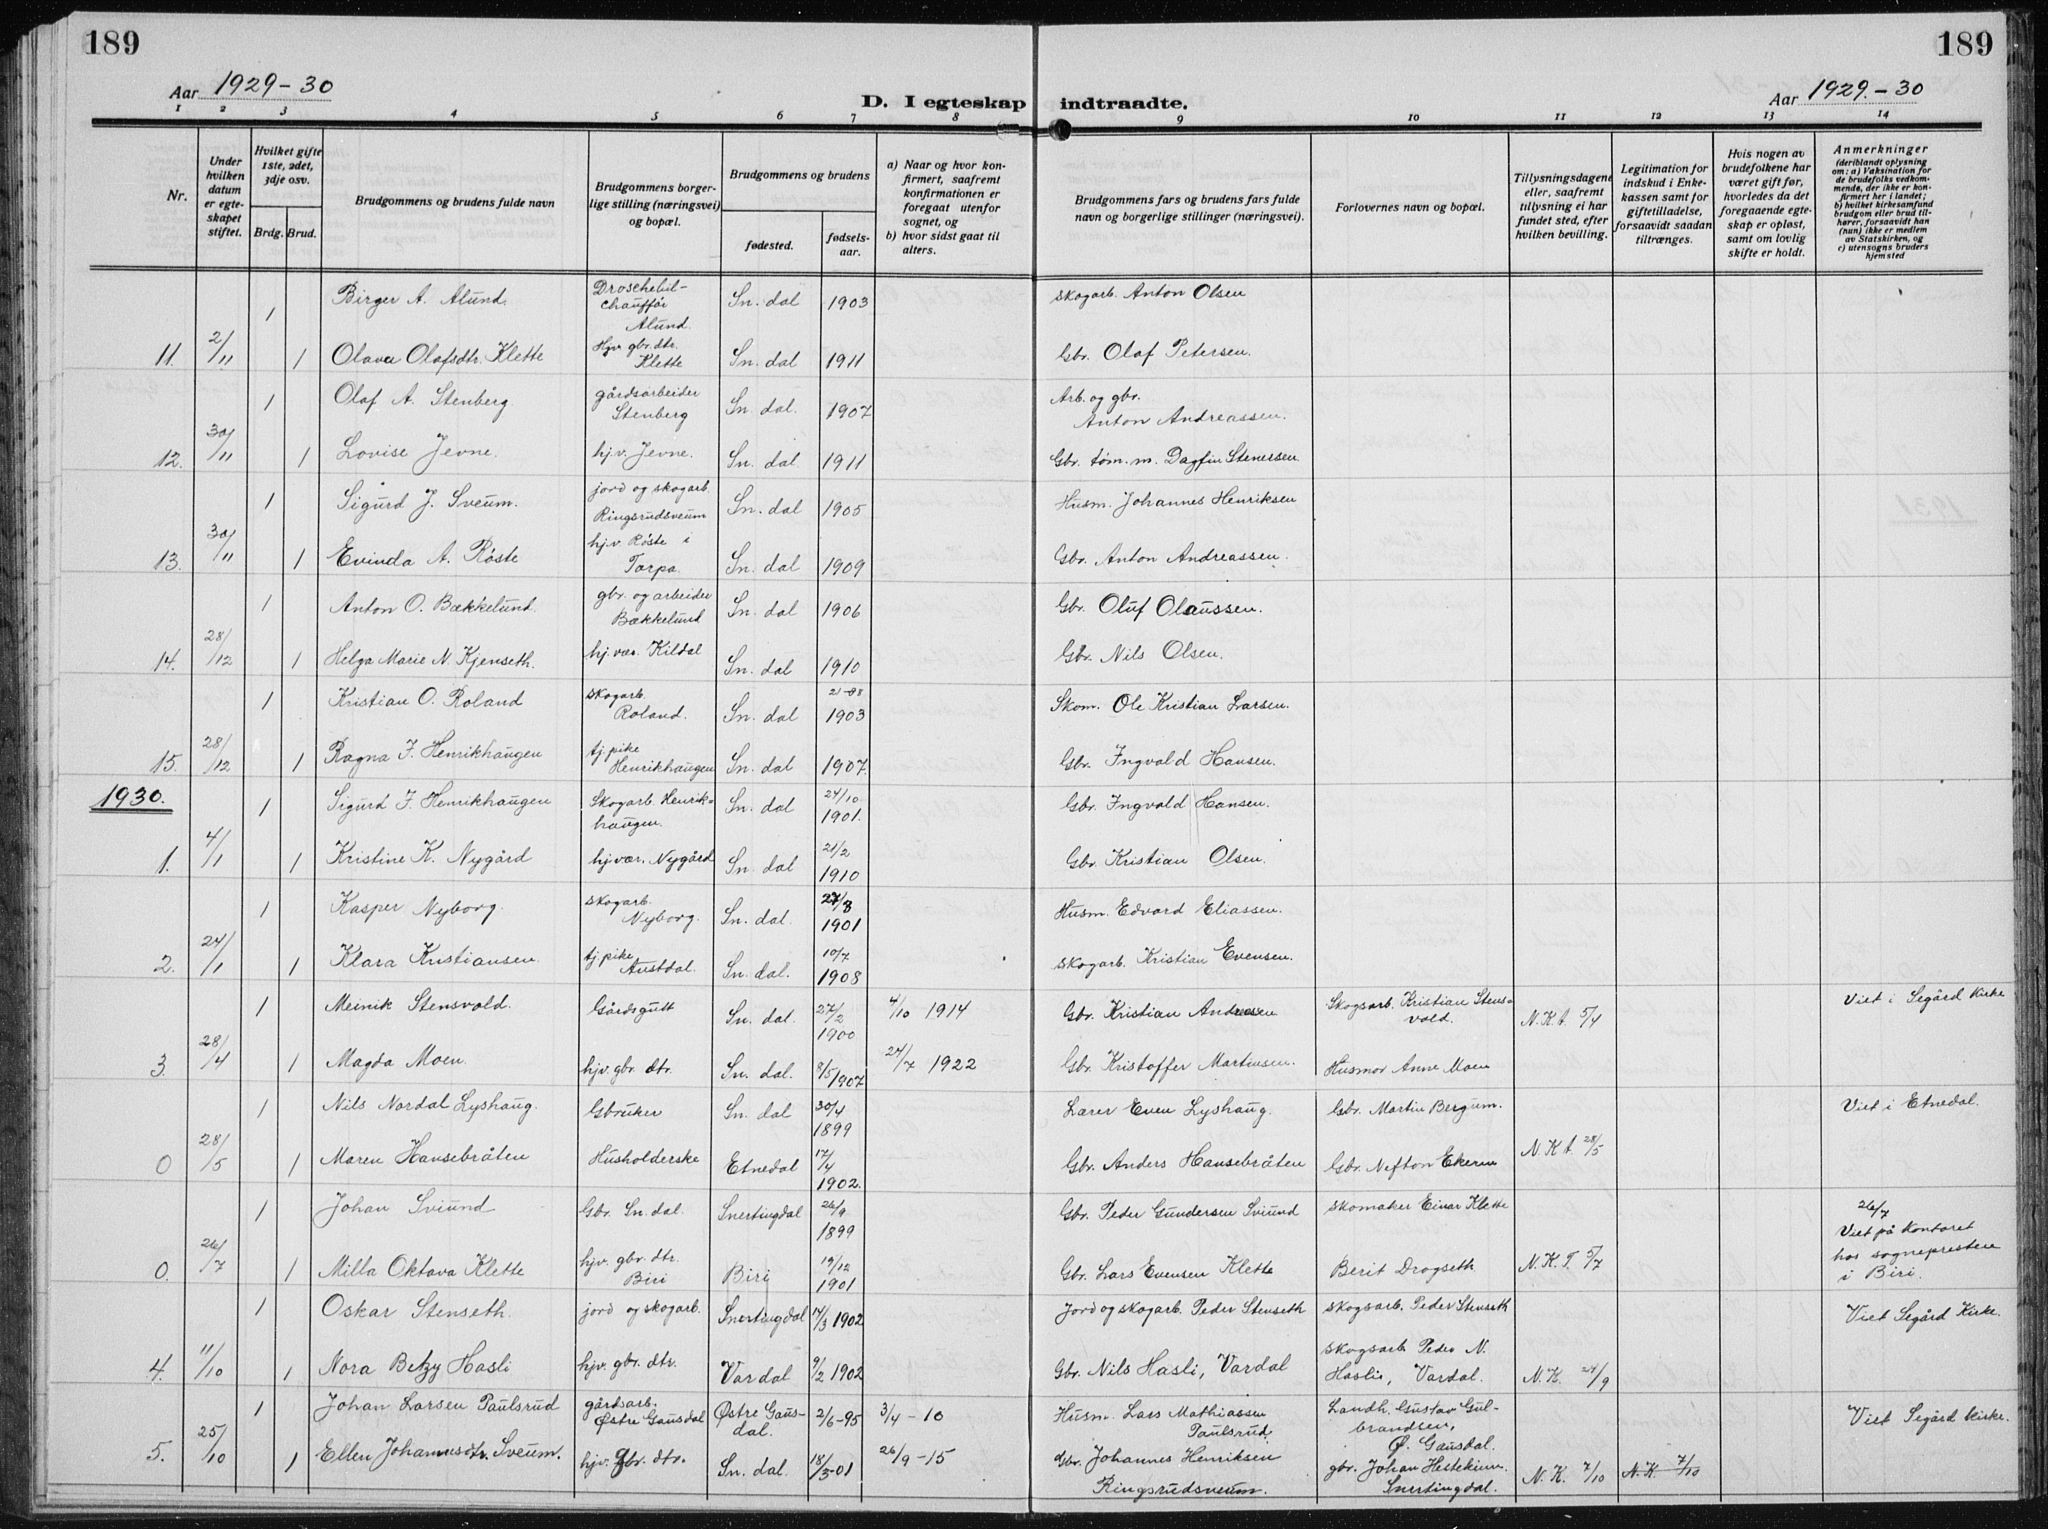 189
189
Aar 1929-30
D. I egteskap indtraadte.
Aar 1929.-30
1 2 3 4 5 6 7 8 9 10 11 12 13 14
Nr.
Under hvilken datum er egteskapet stiftet.
Hvilket gifte 1ste, 2det, 3dje osv.
Brdg. Brud.
Brudgommens og brudens fulde navn
Brudgommens borgerlige stilling (næringsvei) og bopæl.
Brudgommens og brudens
fødested.
fødselsaar.
a) Naar og hvor konfirmert, saafremt konfirmationen er foregaat utenfor sognet, og
b) hvor sidst gaat til alters.
Brudgommens fars og brudens fars fulde navn og borgerlige stillinger (næringsvei).
Forlovernes navn og bopæl.
Tillysningsdagene eller, saafremt tillysning ei har fundet sted, efter hvilken bevilling.
Legitimation for indskud i Enkekassen samt for giftetilladelse, forsaavidt saadan tiltrænges.
Hvis nogen av brudefolkene har været gift før, hvorledes da det foregaaende egteskap er opløst, samt om lovlig skifte er holdt.
Anmerkninger (deriblandt oplysning om: a) Vaksination for de brudefolks vedkommende, der ikke er konfirmert her i landet; b) hvilket kirkesamfund brudgom eller brud tilhører, forsaavidt han (hun) ikke er medlem av Statskirken, og c) utensogns bruders hjemsted
1 Birger A. Alund. Droschebilchauffør Alund. Sn. dal 1903 Skogarb. Anton Olsen
11. 2/11 1 Olava Olafsdtr. Klette Hjv. gbr. dtr. Klette Sn. dal 1911 Gbr. Olaf Petersen.
1 Olaf A. Stenberg gårdsarbeider Stenberg Sn. dal. 1907 Arb. og gbr. Anton Andreassen.
12. 30/11 1 Lovise Jevne. hjv. Jevne. Sn. dal 1911 Gbr. tøm. m. Dagfin Stenersen
1 Sigurd J. Sveum. jord og skogarb. Ringsrudsveum Sn. dal 1905 Husm. Johannes Henriksen
13. 30/11 1 Evinda A. Røste hjv. Røste i Torpa. Sn. dal 1909 Gbr. Anton Andreassen.
1 Anton O. Bækkelund. gbr. og arbeider Bækkelund Sn. dal 1906 Gbr. Oluf Olaussen.
14. 28/12 1 Helga Marie N. Kjenseth. hj. vær. Kildal Sn. dal 1910 Gbr. Nils Olsen.
1 Kristian O. Roland skogarb. Roland. Sn. dal 1903 Skom. Ole Kristian Larsen.
15. 28/12 1 Ragna I. Henrikhaugen tj. pike Henrikhaugen Sn. dal 1907. Gbr. Ingvald Hansen.
1930.
1 Sigurd I. Henrikhaugen Skogarb. Henrikhaugen. Sn. dal 24/10 1901. Gbr. Ingvald Hansen.
1. 4/1 1 Kristine K. Nygård hj. vær. Nygård Sn. dal 21/2 1910 Gbr. Kristian Olsen.
1 Kasper Nyborg. skogarb. Nyborg. Sn. dal. 1901 Husm. Edvard Eliassen.
2. 24/1 1 Klara Kristiansen. tj. pike Austdal. Sn. dal. 10/7 1908 skogarb. Kristian Evensen.
1 Meinik Stensvold. Gårdsgutt Sn. dal. 27/2 1900 4/10 1914 Gbr. Kristian Andreassen Skogsarb. Kristian Stensvold. N.K.t. 5/4 Viet i Segård Kirke
3. 28/4 1 Magda Moen. hjv. gbr. dtr. Sn. dal. 8/5 1907 24/7 1922 Gbr. Kristoffer Martinsen. Husmor Anne Moen
1 Nils Nordal Lyshaug. Gbruker Sn. dal 30/4 1899 Lærer Even Lyshaug. Gbr. Martin Bergum. Viet i Etnedal.
0 28/5 1 Maren Hansebråten Husholderske Etnedal 17/4 1902. Gbr. Anders Hansebråten Gbr. Nefton Ekern N.K.t. 28/5
1 Johan Sviund Gbr. Sn. dal. Snertingdal 26/9 1899 Gbr. Peder Gundersen Sviund skomaker Einar Klette 26/7 Viet på kontoret hos sognepresten i Biri.
0. 26/7 1 Milla Oktava Klette hjv. gbr. dtr. Biri Biri 19/12 1901 Gbr. Lars Evensen Klette Berit Drogseth N.K.T. 5/7
1 Oskar Stenseth. jord og skogarb. Snertingdal 14/3 1902 Jord og skogarb. Peder Stenseth skogsarb. Peder Stenseth Viet Segård Kirke.
4. 11/10 1 Nora Betzy Hasli hjv. gbr. dtr. Vardal 9/2 1902 Gbr. Nils Hasli, Vardal skogsarb. Peder N. Haslie, Vardal. N.K. 24/9
1 Johan Larsen Paulsrud gårdsarb. Østre Gausdal Østre Gausdal. 2/6-95 3/4-10 Husm. Lars Mathiassen Paulsrud. Landh. Gustav Gulbrandsen, Ø. Gausdal. Viet Segård kirke.
5. 25/10 1 Ellen Johannesdtr. Sveum. hjv. gbr. dtr. Sn. dal. 18/5-01 26/9-15 Gbr. Johannes Henriksen Ringsrudsveum. gbr. Johan Hestekinn Snertingdal. N.K. 7/10 N.K. 7/10